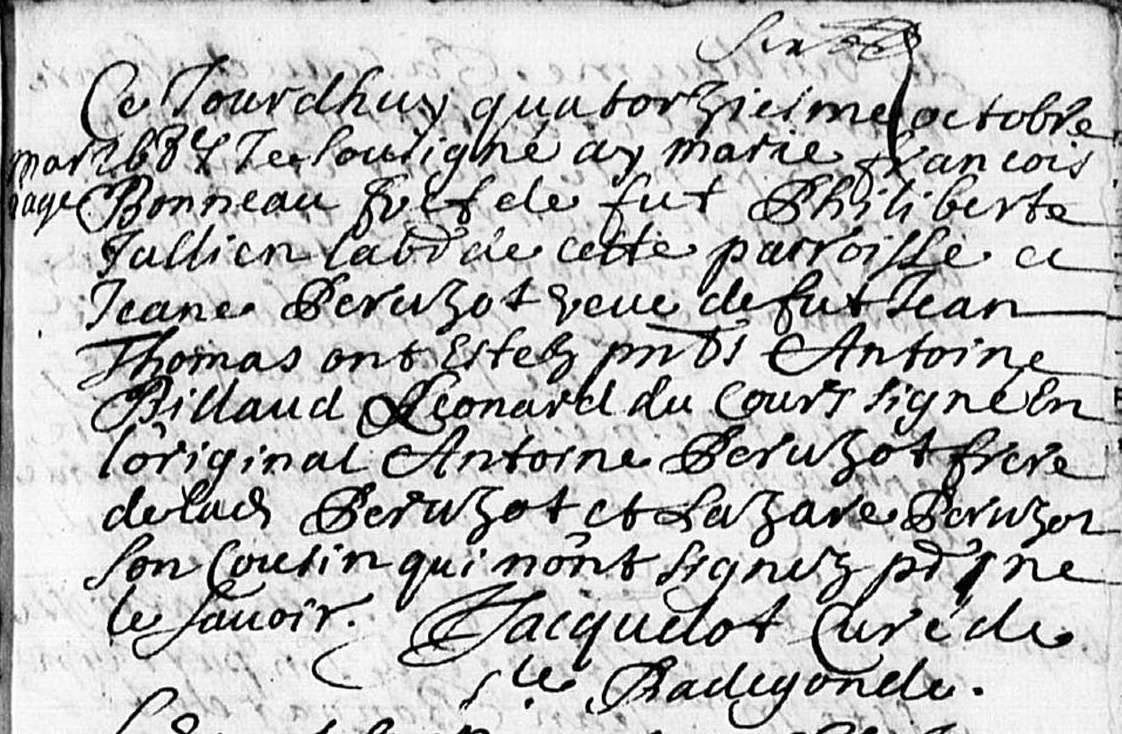 Ce Jourdhuy quatorziesme octobre
mar 1687 Je sousigne ay marie francois
iage Bonneau Veuf de fut Philiberte
Jullien labr de cette parroisse a
Jeane Peruzot veue de fut Jean
Thomas ont Estez pnts Antoine
Billaud Leonard du Court signé En
loriginal Antoine Peruzot frere
de lad Peruzot et Lazare Peruzot
son Cousin qui nont signez pr ne
le scavoir. Jacquelot Curé de
Ste Radegonde.